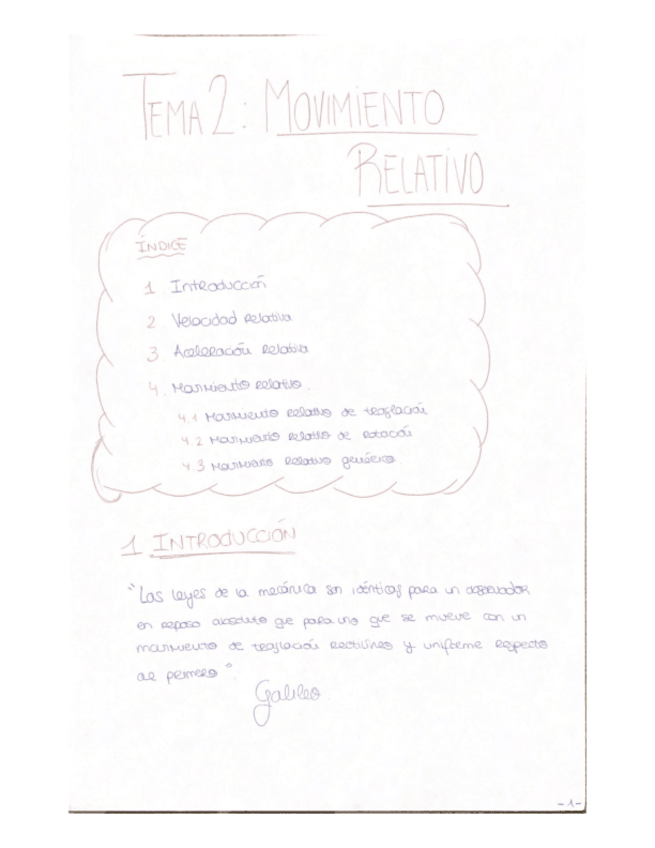 TEMA 2: MOVIMIENTO
RELATIVO
ÍNDICE
1 Introducción
2 Velocidad relativa
3 Aceleración relativa
4. Movimiento relativo.
4.1 Movimiento relativo de traslación
4.2 Movimiento relativo de rotación
4.3 Movimiento relativo genérico
1 INTRODUCCIÓN
"Las leyes de la mecánica son idénticas para un observador
en reposo absoluto que para uno que se mueve con un
movimiento de traslación rectilíneo y uniforme respecto
al primero".
Galileo
-1-